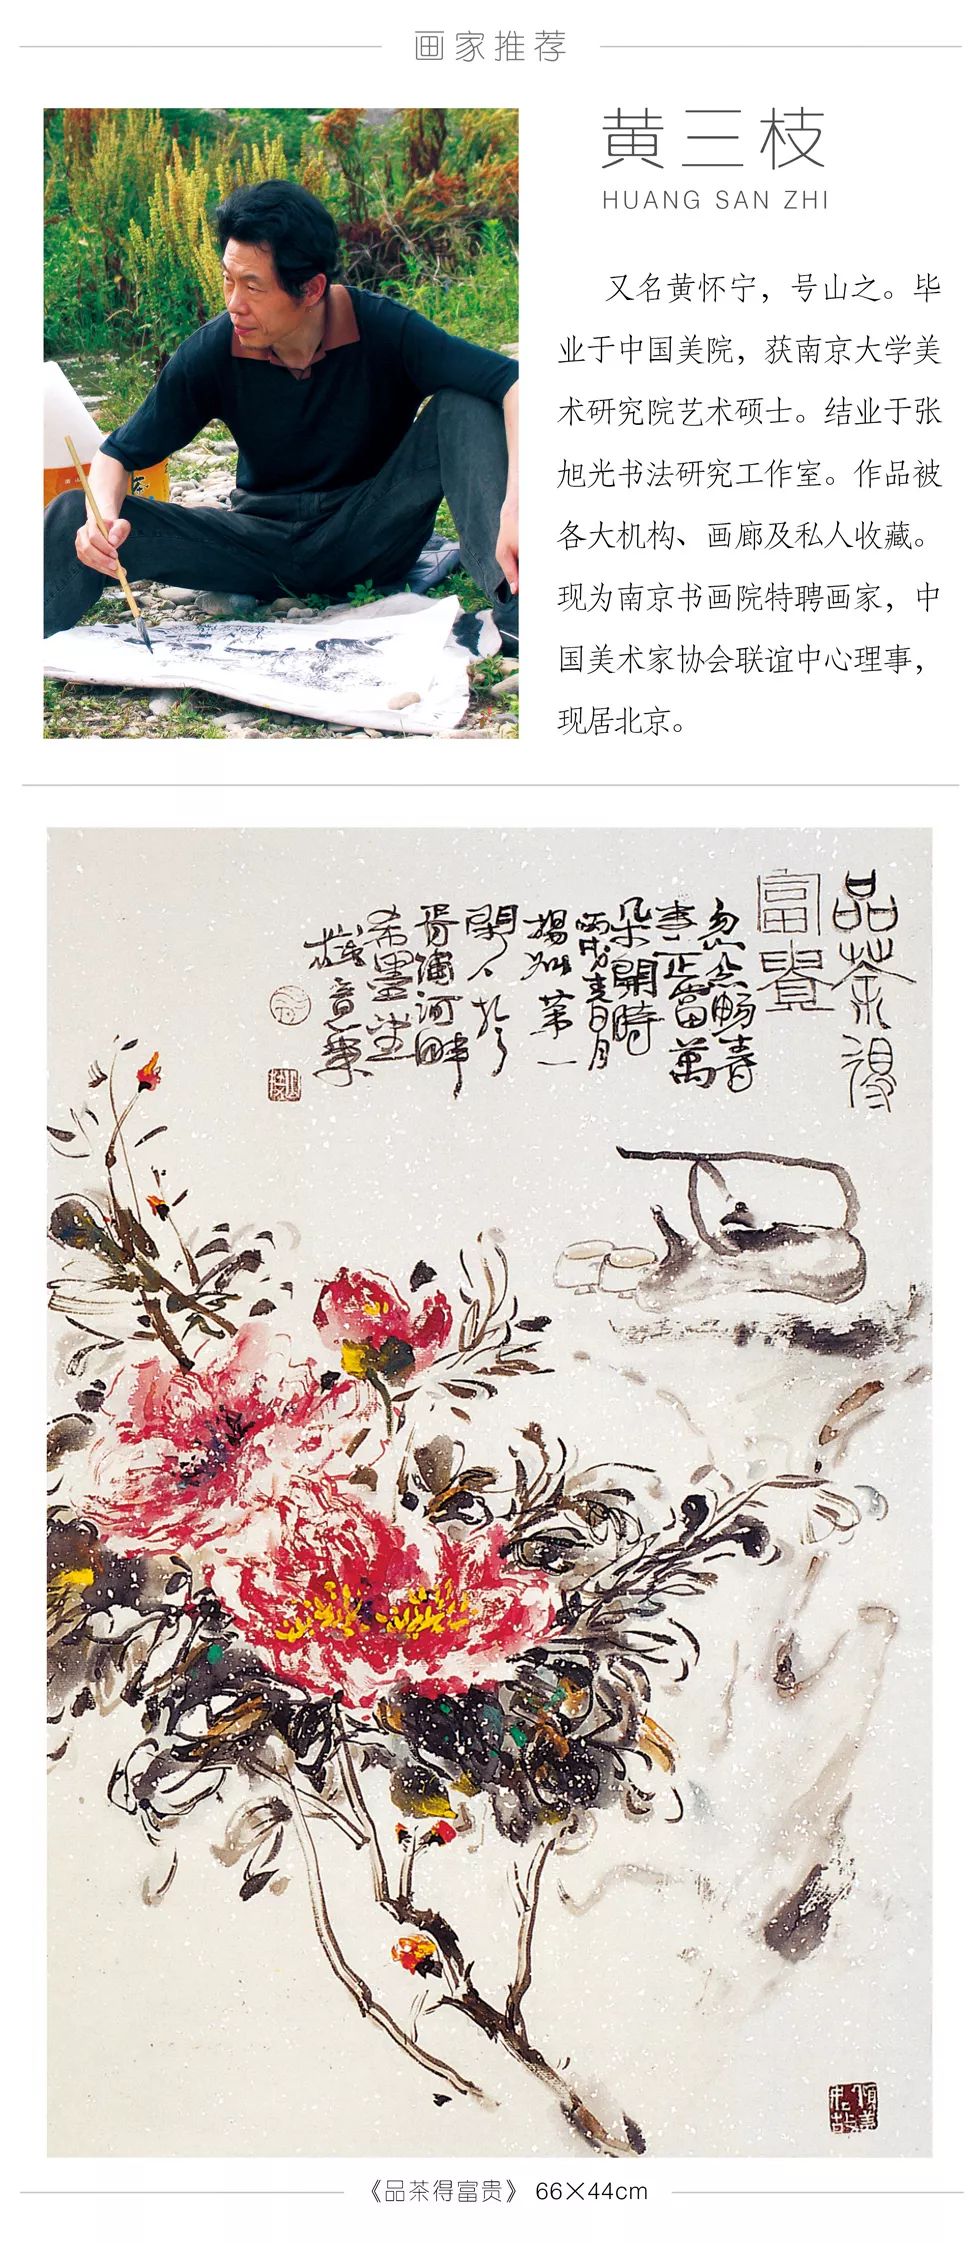 画家推荐
黄三枝
HUANG SAN ZHI
又名黄怀宁，号山之。毕
业于中国美院，获南京大学美
术研究院艺术硕士。结业于张
旭光书法研究工作室。作品被
各大机构、画廊及私人收藏。
现为南京书画院特聘画家，中
国美术家协会联谊中心理事，
现居北京。
品茶得
富貴
畅春
事正當萬
朵開時
丙戌春日月
第一
胥浦河畔
希墨堂
《品茶得富贵》 66×44cm